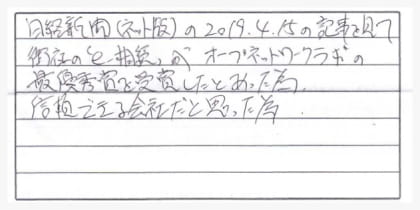 日経新聞(ネット版)の2019.4.15の記事を見て
御社の“e-相続”がオープンネットワークラボの
最優秀賞を受賞したとあった為。
信頼できる会社だと思った為